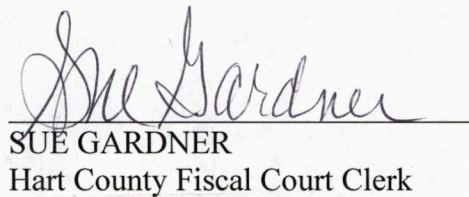 Sue Gardner
SUE GARDNER
Hart County Fiscal Court Clerk